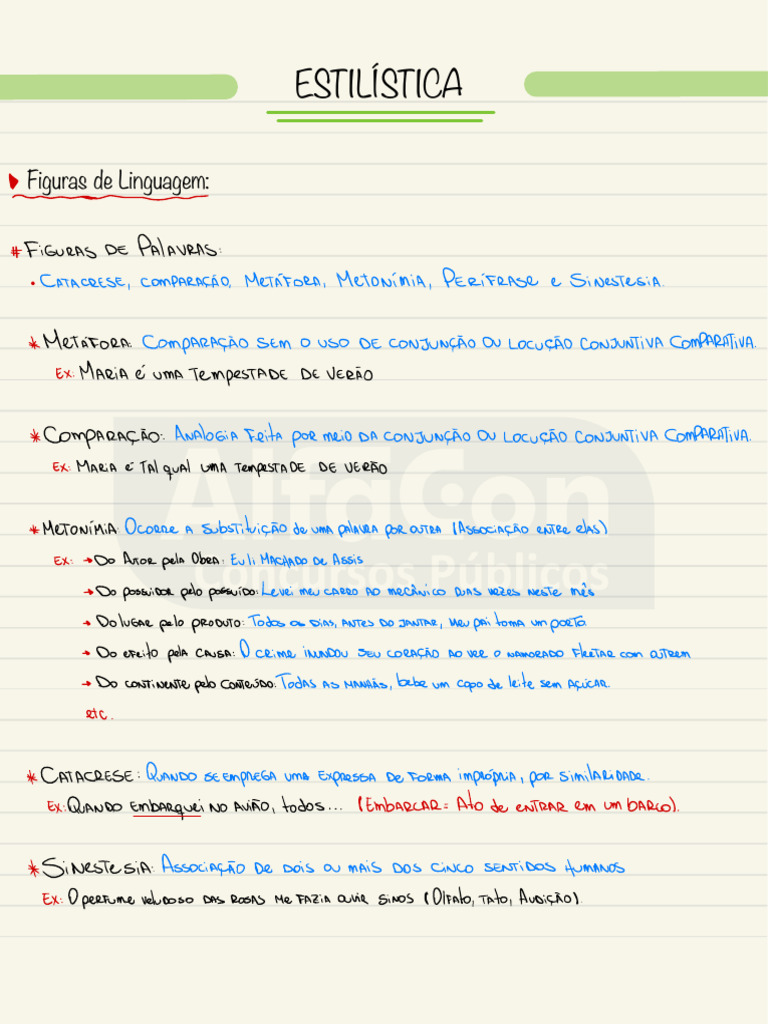 ESTILÍSTICA
Figuras de Linguagem:
# FIGURAS DE PALAVRAS:
• CATACRESE, COMPARAÇÃO, METÁFORA, METONÍMIA, PERÍFRASE E SINESTESIA.
* METÁFORA: COMPARAÇÃO SEM O USO DE CONJUNÇÃO OU LOCUÇÃO CONJUNTIVA COMPARATIVA.
Ex: MARIA É UMA TEMPESTADE DE VERÃO
* COMPARAÇÃO: ANALOGIA FEITA POR MEIO DA CONJUNÇÃO OU LOCUÇÃO CONJUNTIVA COMPARATIVA.
Ex: MARIA É TAL QUAL UMA TEMPESTADE DE VERÃO
* METONÍMIA: OCORRE A SUBSTITUIÇÃO DE UMA PALAVRA POR OUTRA (ASSOCIAÇÃO ENTRE ELAS)
Ex: → DO AUTOR PELA OBRA: EU LI MACHADO DE ASSIS
→ DO POSSUIDOR PELO POSSUÍDO: LEVEI MEU CARRO AO MECÂNICO DUAS VEZES NESTE MÊS
→ DO LUGAR PELO PRODUTO: TODOS OS DIAS, ANTES DO JANTAR, MEU PAI TOMA UM PORTO
→ DO EFEITO PELA CAUSA: O CRIME INUNDOU SEU CORAÇÃO AO VER O NAMORADO FLERTAR COM OUTREM
→ DO CONTINENTE PELO CONTEÚDO: TODAS AS MANHÃS, BEBE UM COPO DE LEITE SEM AÇÚCAR.
etc.
* CATACRESE: QUANDO SE EMPREGA UMA EXPRESSA DE FORMA IMPRÓPRIA, POR SIMILARIDADE.
Ex: QUANDO EMBARQUEI NO AVIÃO, TODOS... (EMBARCAR = ATO DE ENTRAR EM UM BARCO).
* SINESTESIA: ASSOCIAÇÃO DE DOIS OU MAIS DOS CINCO SENTIDOS HUMANOS
Ex: O PERFUME VELUDOSO DAS ROSAS ME FAZIA OUVIR SINOS (OLFATO, TATO, AUDIÇÃO).
AlfaCon
Concursos Públicos